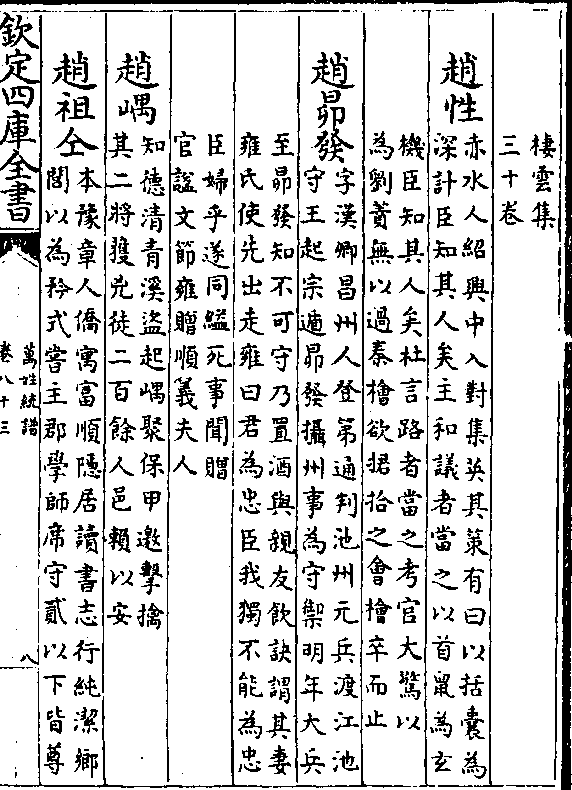 棲雲集
三十卷
趙性
赤水人紹興中入對集英其策有曰以括囊為
深計臣知其人矣主和議者當之以首鼠為玄
機臣知其人矣杜言路者當之考官大驚以
為劉蕡無以過秦檜欲捃拾之會檜卒而止
趙昴發
字漢卿昌州人登第通判池州元兵渡江池
守王起宗遁昴發攝州事為守禦明年大兵
至昴發知不可守乃置酒與親友飲訣謂其妻
雍氏使先出走雍曰君為忠臣我獨不能為忠
臣婦乎遂同縊死事聞贈
官諡文節雍贈順義夫人
趙嵎
知德清青溪盜起嵎聚保甲邀擊擒
其二將獲兇徒二百餘人邑賴以安
趙祖仝
本豫章人僑寓富順隱居讀書志行純潔鄉
閭以為矜式嘗主郡學師席守貳以下皆尊
欽定四庫全書
萬姓統譜
卷八十三
八